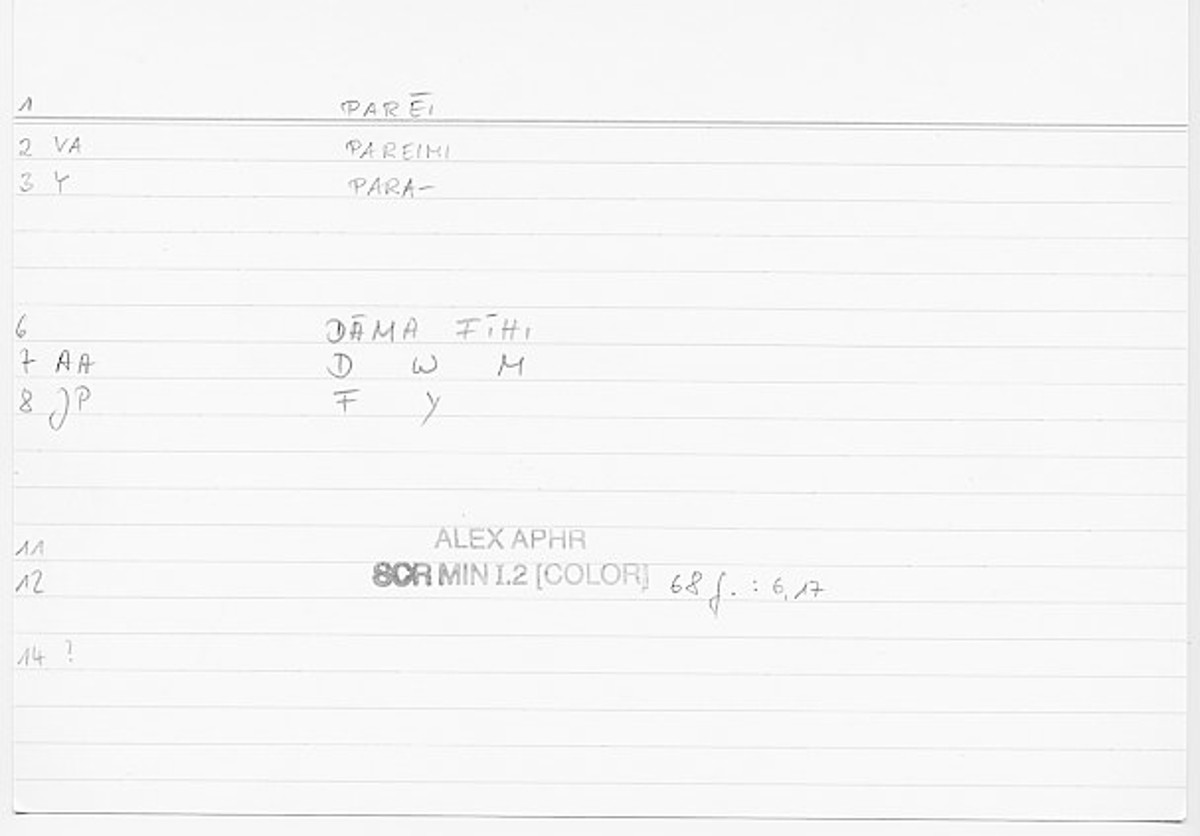 1 PARĒI
2 VA PAREIMI
3 Y PARA-
6 DĀMA FĪHI
7 AA D W M
8 JP F Y
11 ALEX APHR
12 SCR MIN I.2 [COLOR] 68 f. : 6,17
14 ?